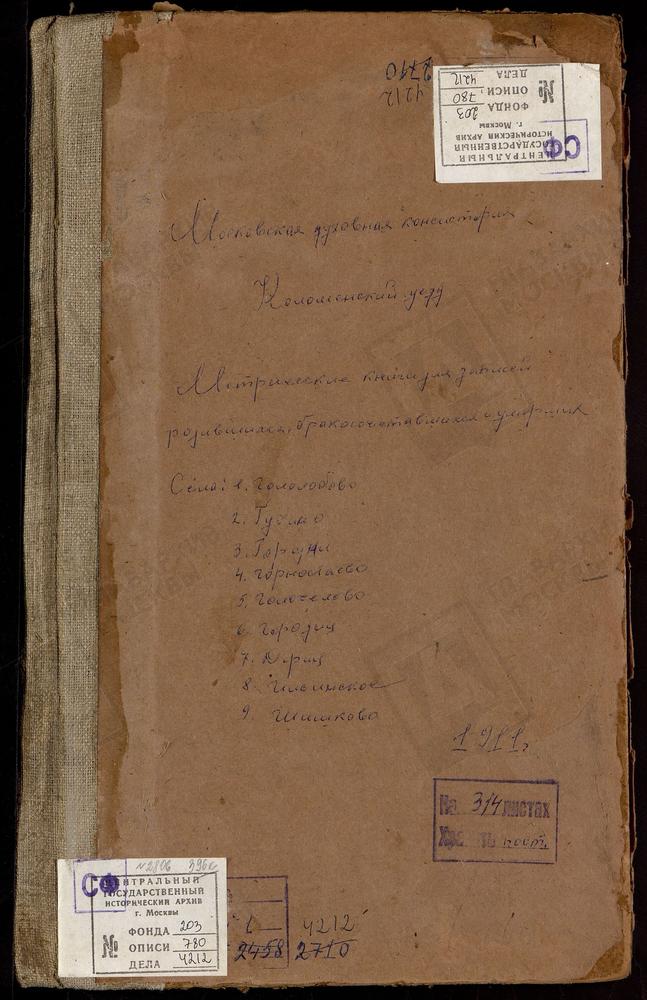 2710
4212
ЦЕНТРАЛЬНЫЙ
ГОСУДАРСТВЕННЫЙ
ИСТОРИЧЕСКИЙ АРХИВ
г. Москвы
ФОНДА 203
№ ОПИСИ 780
ДЕЛА 4212
СФ
Московская духовная консистория
Коломенский уезд
Метрические книги для записей
родившихся, бракосочетавшихся и умерших
Села: 1. Гололобово
2.
3. Городня
4. Горностаево
5. Голочелово
6.
7.
8. Ильинское
9. Шишково
1911г
На 314 листах
Хранить пост.
СФ
№2806 396с
ЦЕНТРАЛЬНЫЙ
ГОСУДАРСТВЕННЫЙ
ИСТОРИЧЕСКИЙ АРХИВ
г. Москвы
ФОНДА 203
№ ОПИСИ 780
ДЕЛА 4212
4212
2458 2710